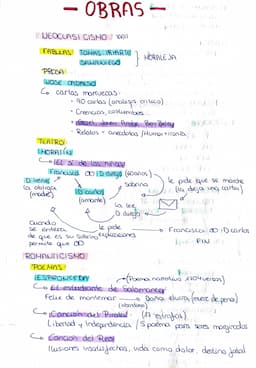 - OBRAS -
NEOCLASICISMO XVIII
FÁBULAS TOMÁS IRIARTE
SAMANIEGO
MORALEJA
PROSA
JOSÉ CADALSO
cartas marruecas:
• 90 cartas (análisis crítico)
• Creencias, costumbres...
• Relatos + anécdotas /Humor+ironía
TEATRO
MORATÍN
El sí de las niñas
Francisca D. Diego (60 años)
D. Irene
la obliga
(madre)
D. Carlos
(amante)
sobrino
le pide que se marche
(la deja una carta)
la lee
D. Diego
Cuando
se entera
de que es su sobrino
permite que
le pide
explicaciones
Francisca D. Carlos
FIN
ROMANTICISMO
POEMAS
ESPRONCEDA
(Poema narrativo 1704 versos)
El estudiante de Salamanca
Félix de montemar Doña Elvira (muere de pena)
(abandona)
Canción del Pirata
Libertad y Independencia / 5 poemas para seres marginados
Canción del Reo
Ilusiones insatisfechas, vida como dolor, destino fatal